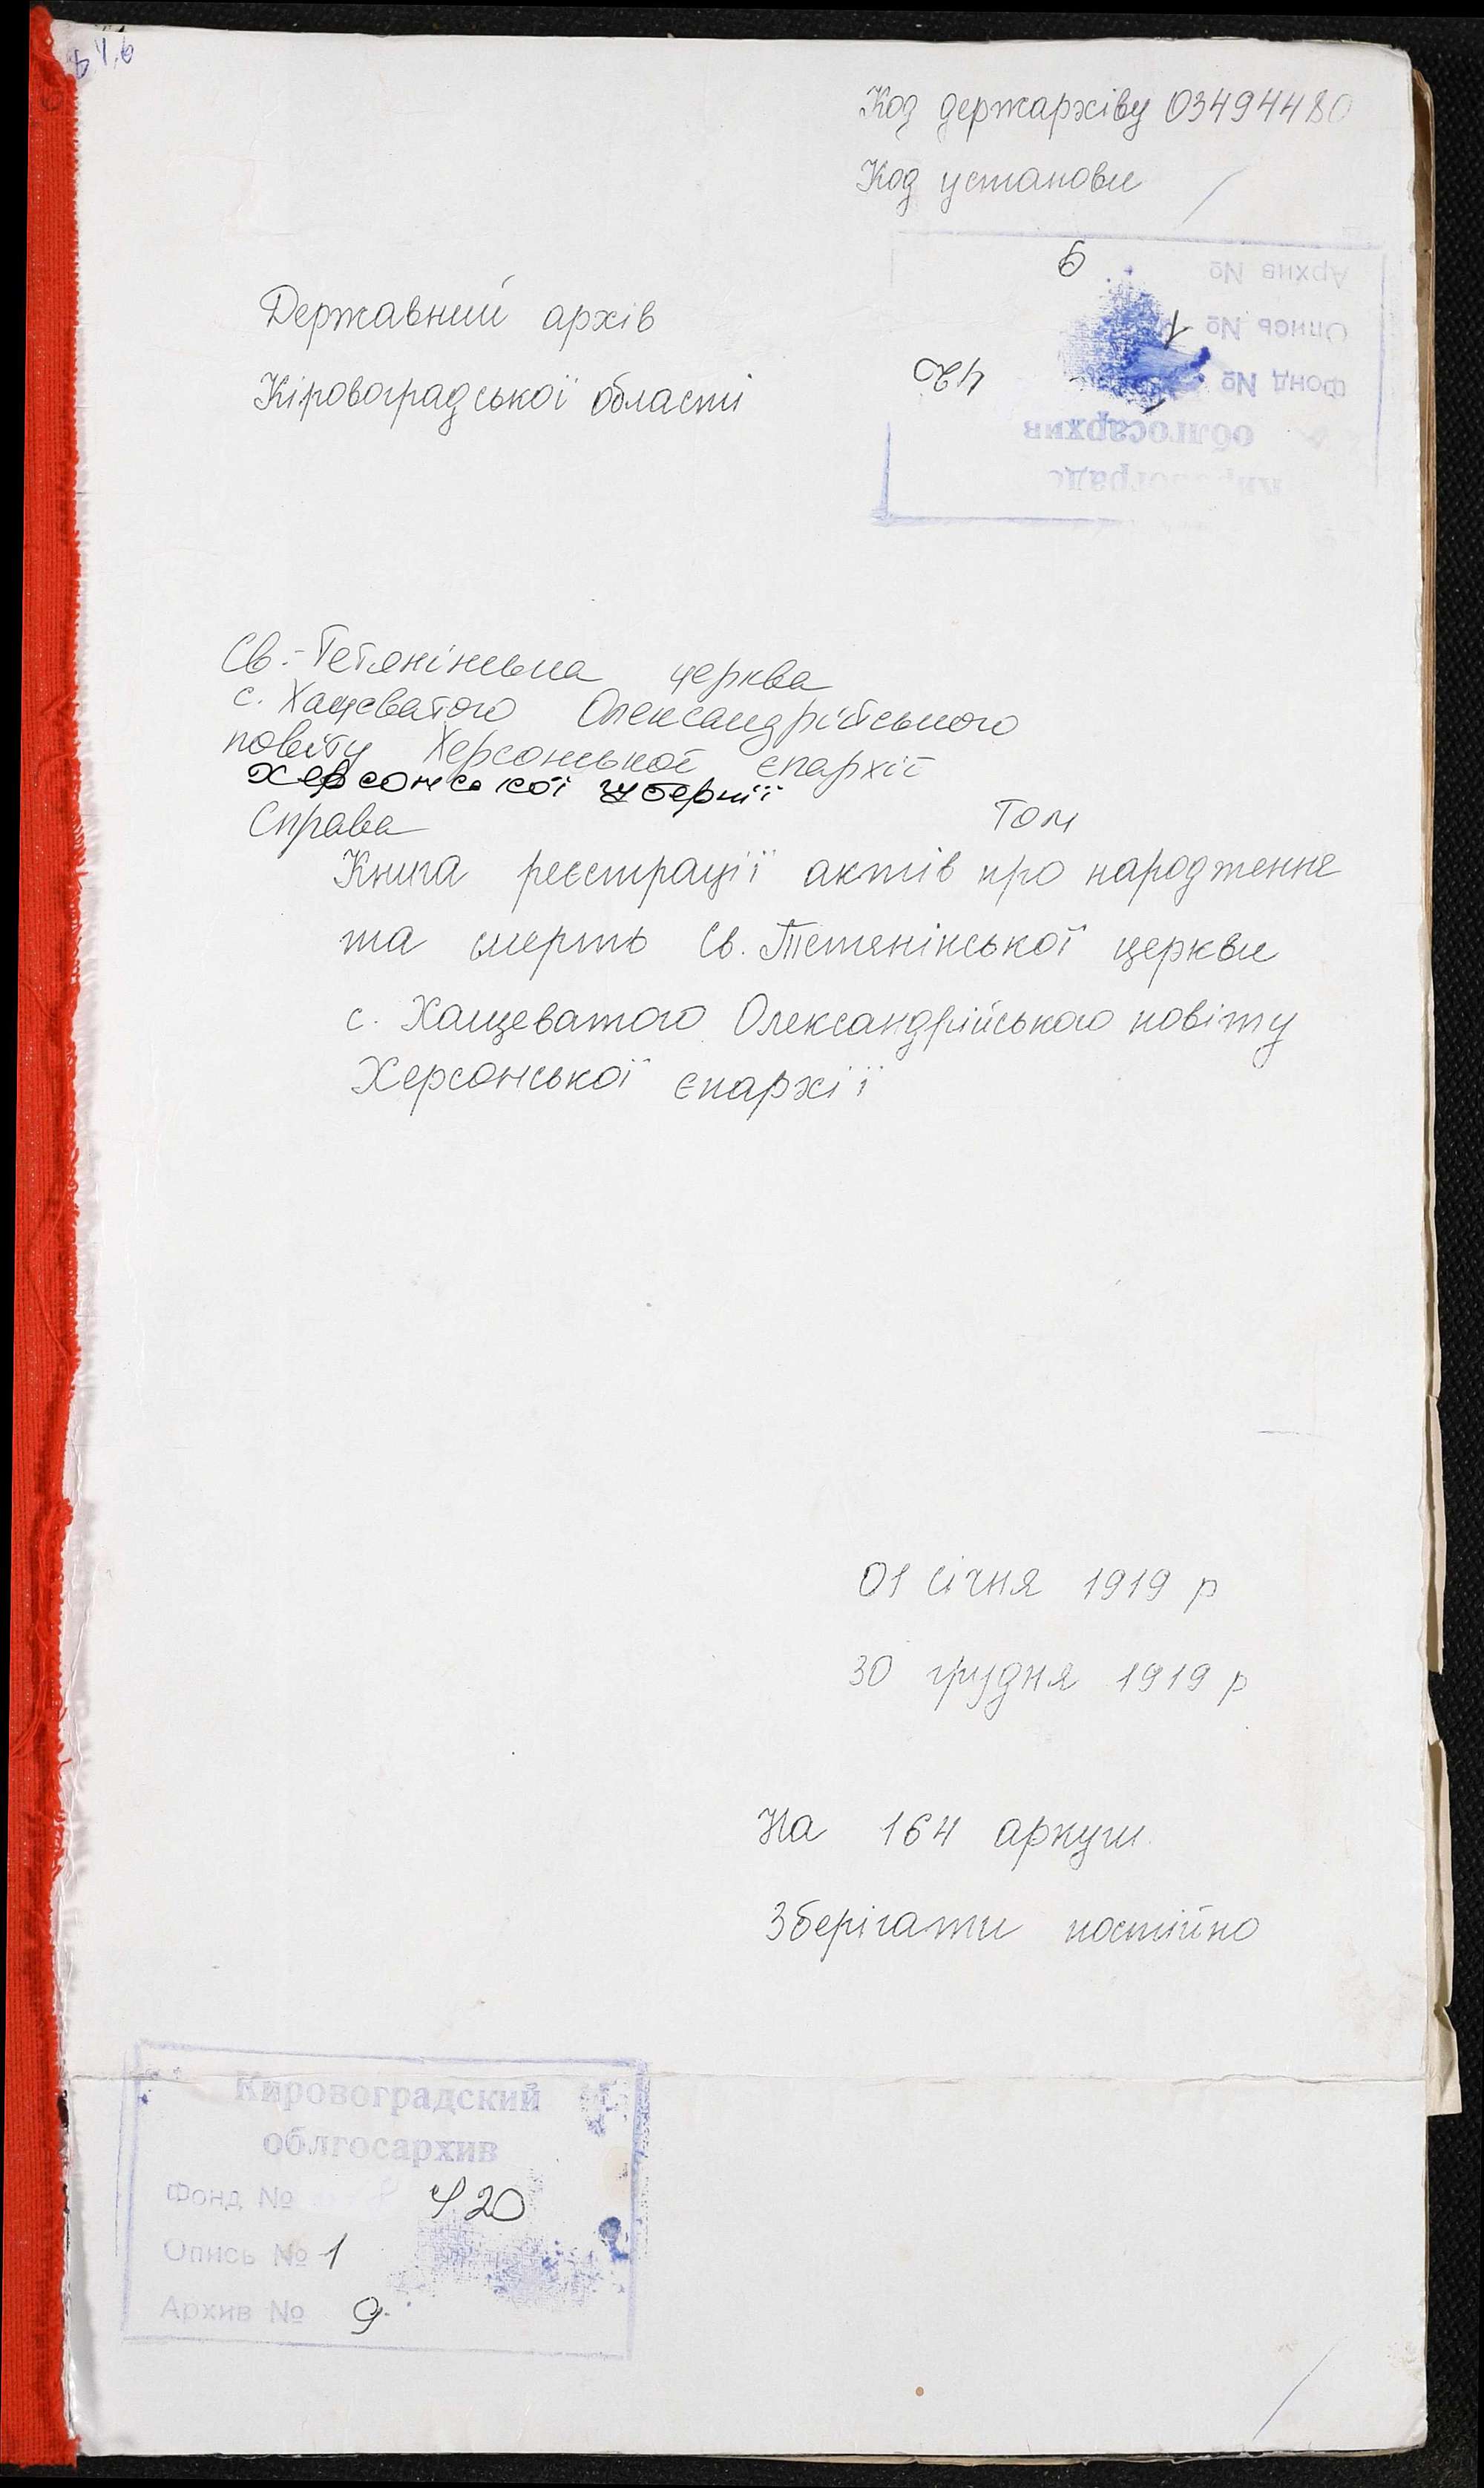 Код держархіву 03494480
Код установи
Архив № 9
Опись № 1
Фонд № 420
облгосархив
Державний архів
Кіровоградської області
Св.-Тетянінська церква
с. Хащеватого Олександрійського
повіту Херсонської єпархії
Херсонської губернії
Справа Том
Книга реєстрації актів про народження
та смерть Св. Тетянінської церкви
с. Хащеватого Олександрійського повіту
Херсонської єпархії
01 січня 1919 р
30 грудня 1919 р
На 164 аркуш.
Зберігати постійно
Кировоградский
облгосархив
Фонд № 420
Опись № 1
Архив № 9